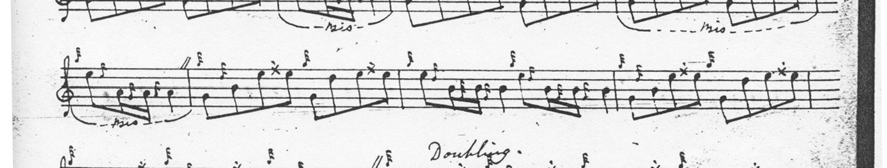 Bis
Bis
Bis
Doubling.